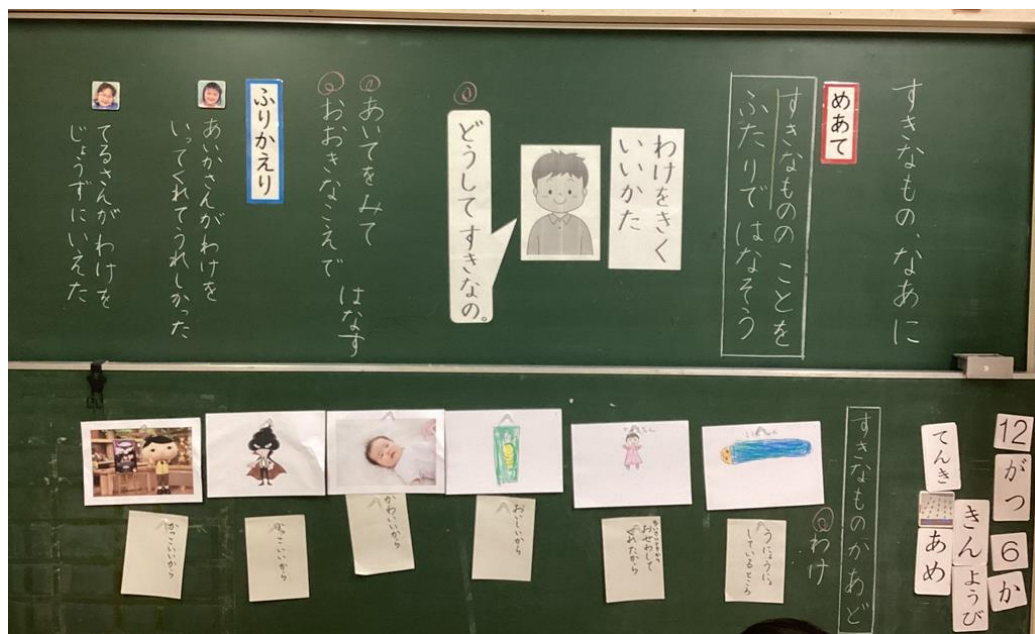 すきなもの、なあに
めあて
すきなものの ことを
ふたりで はなそう
わけをきく
いいかた
どうしてすきなの。
あいてをみて
おおきなこえで
はなす
ふりかえり
あいかさんがわけを
いってくれてうれしかった
てるさんがわけを
じょうずにいえた
12
がつ
6
か
きん
ようび
てんき
あめ
すきなものかあど
わけ
うにょうにょ
しているところ
おせわして
くれたから
おいしいから
かわいいから
かっこいいから
かっこいいから